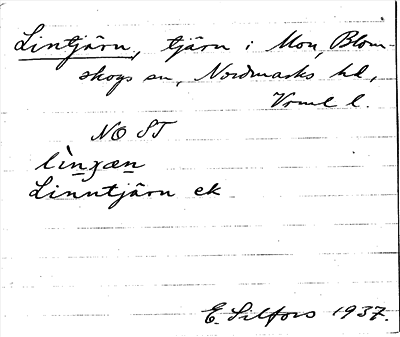 Lintjärn, tjärn i Mon, Blom-
skogs sn, Nordmarks hd,
Vrml l.
NO ST
lìnɟæn
Linntjärn ek
E. Silfors 1937.